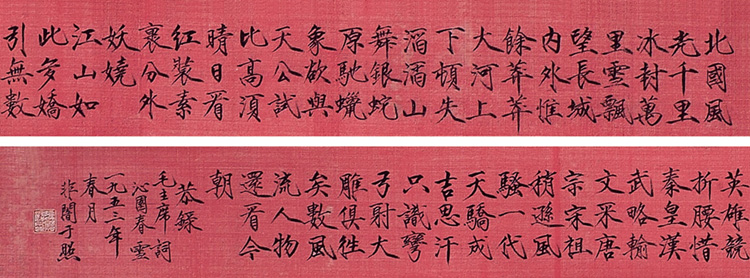 北國風
光千里
冰封萬
里雪飄
望長城
内外惟
餘莽莽
大河上
下頓失
滔滔山
舞銀蛇
原馳蠟
象欲與
天公試
比高須
晴日看
紅裝素
裹分外
妖嬈
江山如
此多嬌
引無數
英雄競
折腰惜
秦皇漢
武略輸
文采唐
宗宋祖
稍遜風
騷一代
天驕成
吉思汗
只識彎
弓射大
雕俱往
矣數風
流人物
還看今
朝
恭錄
毛主席詞
沁園春雪
一九五三年
春月
非闇于照